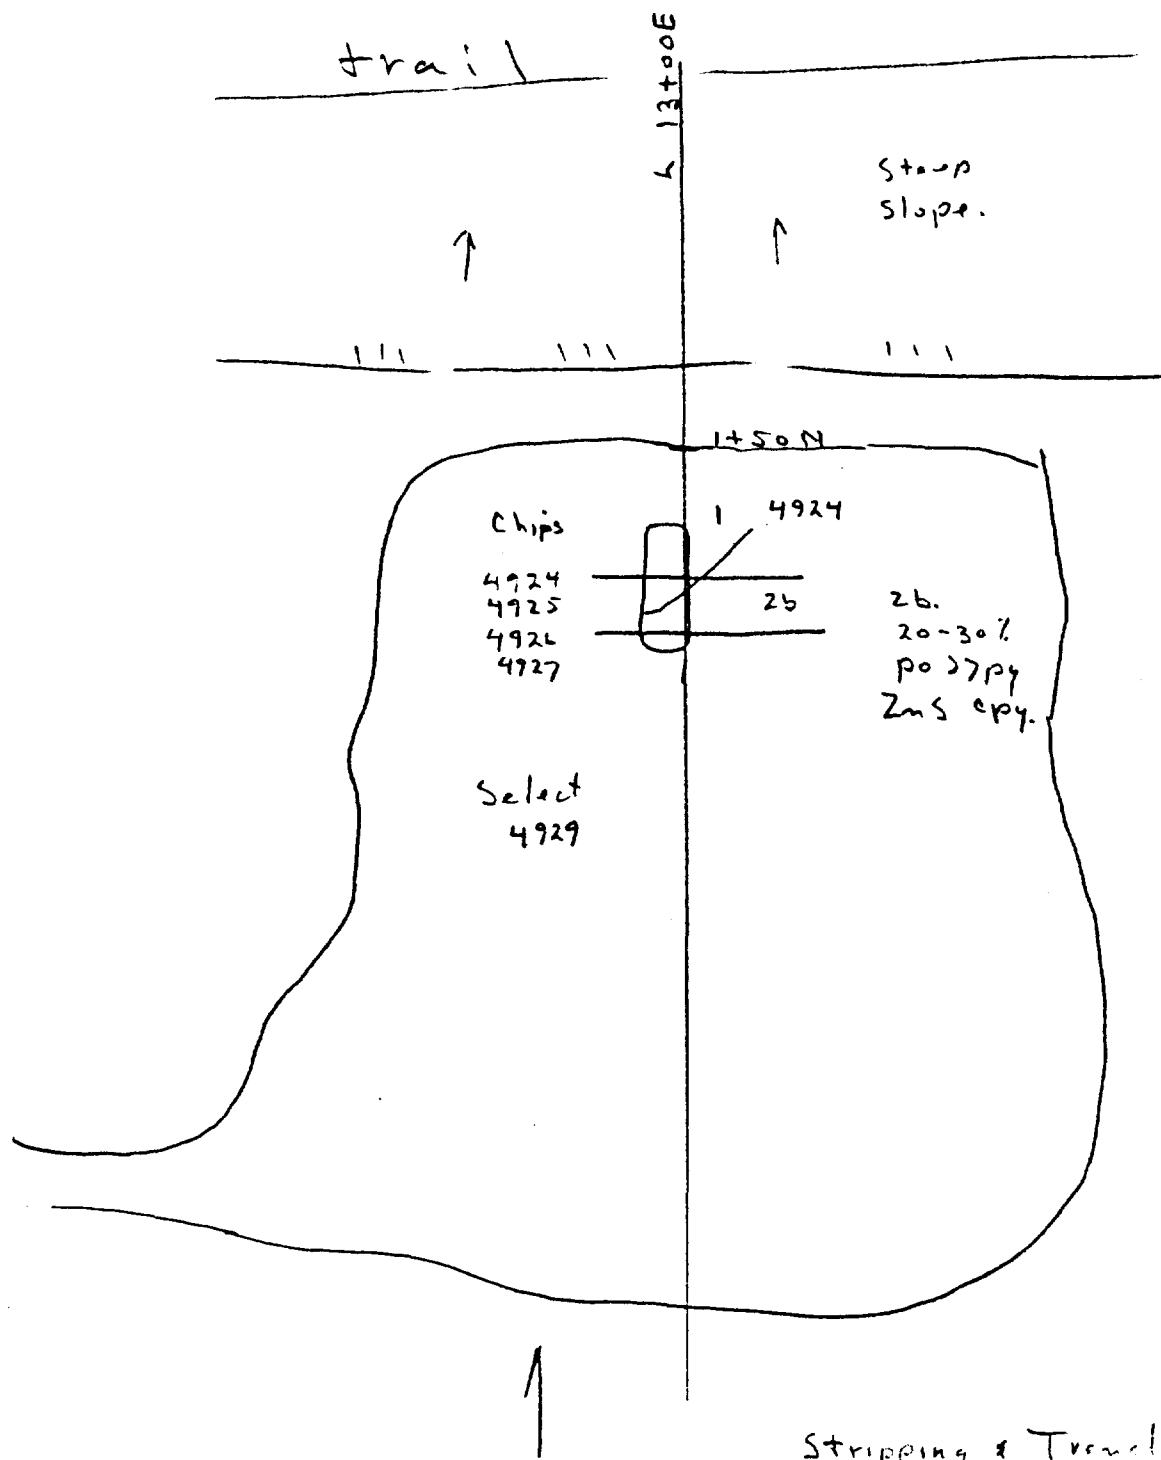 trail
L 13+00E
Steep
slope.
1+50N
Chips
1
4924
4924
4925
4926
4927
2b
2b.
20-30%
po >> py
ZnS cpy.
Select
4929
Stripping &